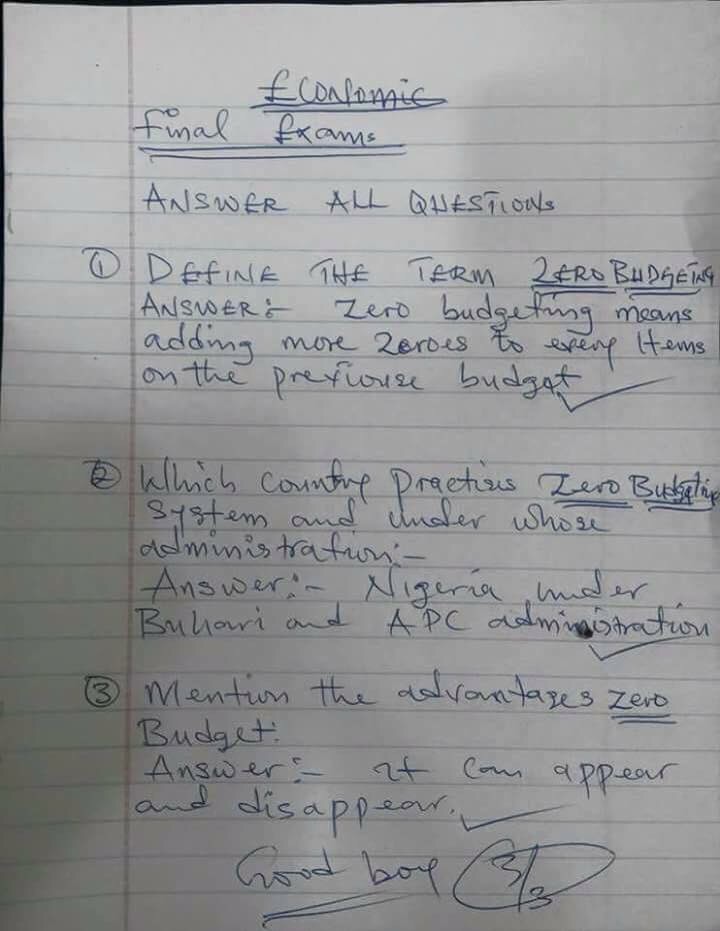 Economic
final Exams
ANSWER ALL QUESTIONS
① DEFINE THE TERM ZERO BUDGETING
ANSWER:- Zero budgeting means
adding more Zeroes to every Items
on the previouse budget
② Which Country Practises Zero Budgeting
System and under whose
administration:-
Answer:- Nigeria under
Buhari and APC administration
③ Mention the advantages Zero
Budget:
Answer:- it can appear
and disappear.
Good boy 3/3